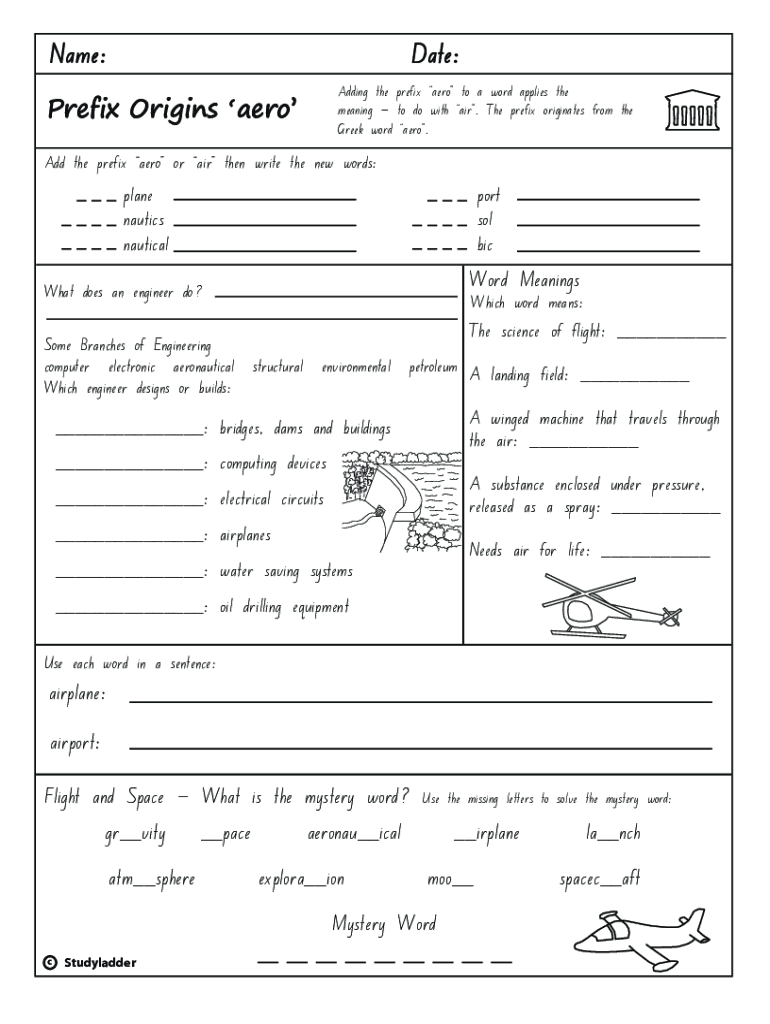 Name: Date:
Prefix Origins ‘aero’
Adding the prefix “aero” to a word applies the
meaning – to do with “air”. The prefix originates from the
Greek word “aero”.
Add the prefix “aero” or “air” then write the new words:
_ _ _ plane ____________ _ _ _ port ____________
_ _ _ _ nautics ____________ _ _ _ _ sol ____________
_ _ _ _ nautical ____________ _ _ _ _ bic ____________
What does an engineer do? ____________
Some Branches of Engineering
computer electronic aeronautical structural environmental petroleum
Which engineer designs or builds:
____________: bridges, dams and buildings
____________: computing devices
____________: electrical circuits
____________: airplanes
____________: water saving systems
____________: oil drilling equipment
Word Meanings
Which word means:
The science of flight: ____________
A landing field: ____________
A winged machine that travels through
the air: ____________
A substance enclosed under pressure,
released as a spray: ____________
Needs air for life: ____________
Use each word in a sentence:
airplane: ____________
airport: ____________
Flight and Space – What is the mystery word? Use the missing letters to solve the mystery word:
gr__vity __pace aeronau__ical __irplane la__nch
atm__sphere explora__ion moo__ spacec__aft
Mystery Word
_ _ _ _ _ _ _ _ _
© Studyladder